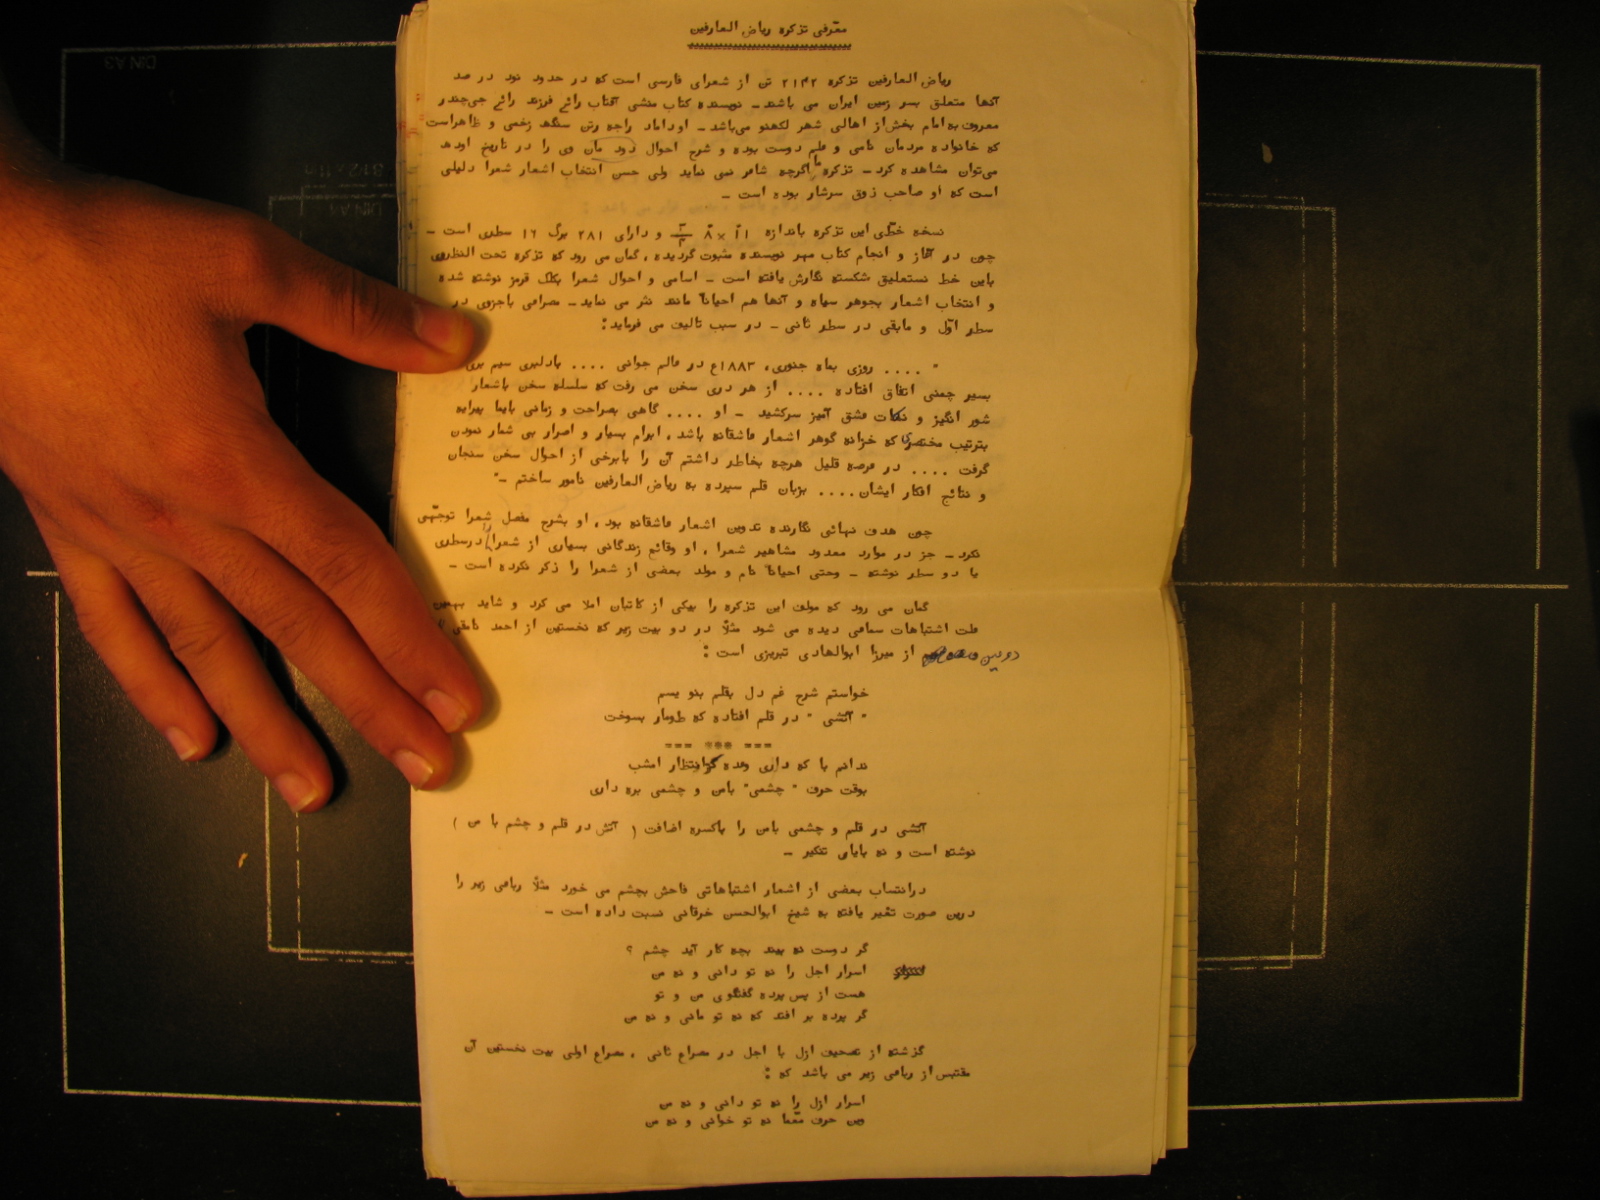 معّرفی تذکره ریاض العارفین
ریاض العارفین تذکره ۲۱۴۲ تن از شعرای فارسی است که در حدود نود در صد
آنها متعلق بسر زمین ایران می باشند ـ نویسنده کتاب منشی آفتاب رائے فرزند رائے جی‌چندر
معروف به امام بخش از اهالی شهر لکهنو می‌باشد ـ او داماد راجه رتن سنگهه زخمی و ظاهراست
که خانواده مردمان نامی و علم دوست بوده و شرح احوال دود مان وی را در تاریخ اودهه
می‌توان مشاهده کرد ـ تذکره ما اگرچه شاعر نمی نماید ولی حسن انتخاب اشعار شعرا دلیلی
است که او صاحب ذوق سرشار بوده است ـ
نسخه خطّی این تذکره باندازه ۱۱ × ۸ ۳/۴ و دارای ۲۸۱ برگ ۱۶ سطری است ـ
چون در آغاز و انجام کتاب مهر نویسنده مثبوت گردیده ، گمان می رود که تذکره تحت النظروی
باین خط نستعلیق شکسته نگارش یافته است ـ اسامی و احوال شعرا بکلک قرمز نوشته شده
و انتخاب اشعار بجوهر سیاه و آنها هم احیاناً مانند نثر می نماید ـ مصراعی باجزوی در
سطر اوّل و مابقی در سطر ثانی ـ در سبب تالیف می فرماید :
" .... روزی بماه جنوری، ۱۸۸۳ع در عالم جوانی .... بادلبری سیم بری
بسیر چمنی اتفاق افتاده .... از هر دری سخن می رفت که سلسله سخن باشعار
شور انگیز و نکات عشق آمیز سرکشید ـ او .... گاهی بصراحت و زمانی بایما پیرایه
بترتیب مختصری که خزانه گوهر اشعار عاشقانه باشد ، ابرام بسیار و اصرار بی شمار نمودن
گرفت .... در عرصه قلیل هرچه بخاطر داشتم آن را بابرخی از احوال سخن سنجان
و نتائج افکار ایشان .... بزبان قلم سپرده به ریاض العارفین نامور ساختم ـ"
چون هدف نهائی نگارنده تدوین اشعار عاشقانه بود ، او بشرح مفصل شعرا توجّهی
نکرد ـ جز در موارد معدود مشاهیر شعرا ، او وقائع زندگانی بسیاری از شعرا را در سطری
یا دو سطر نوشته ـ وحتی احیاناً نام و مولد بعضی از شعرا را ذکر نکرده است ـ
گمان می رود که مولف این تذکره را بیکی از کاتبان املا می کرد و شاید بهمین
علت اشتباهات سماعی دیده می شود مثلاً در دو بیت زیر که نخستین از احمد
دومین از میرزا ابوالهادی تبریزی است :
خواستم شرح غم دل بقلم بنو یسم
" آتشی " در قلم افتاده که طومار بسوخت
=== *** ===
ندانم با که داری وعده گو انتظار امشب
بوقت حرف " چشمی" بامن و چشمی بره داری
آتشی در قلم و چشمی بامن را باکسره اضافت ( آتش در قلم و چشم با من )
نوشته است و نه بایای تنکیر ـ
درانتساب بعضی از اشعار اشتباهاتی فاحش بچشم می خورد مثلاً رباعی زیر را
درین صورت تغیر یافته به شیخ ابوالحسن خرقانی نسبت داده است ـ
گر دوست نه بیند بچه کار آید چشم ؟
اسرار اجل را نه تو دانی و نه من
هست از پس پرده گفتگوی من و تو
گر پرده بر افتد که نه تو مانی و نه من
گزشته از تصحیف ازل با اجل در مصراع ثانی ، مصراع اولی بیت نخستین آن
مقتبس از رباعی زیر می باشد که :
اسرار ازل را نه تو دانی و نه من
وین حرف معّما نه تو خوانی و نه من